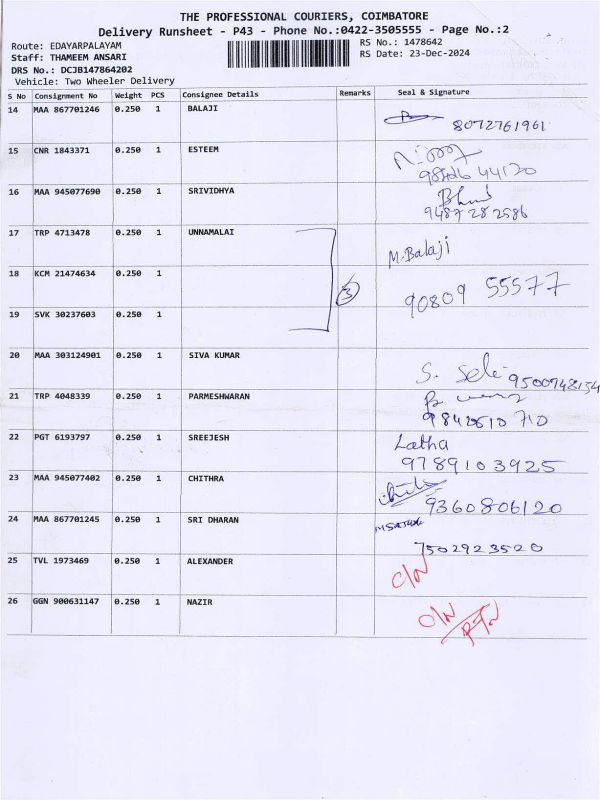 THE PROFESSIONAL COURIERS, COIMBATORE
Delivery Runsheet - P43 - Phone No.:0422-3505555 - Page No.:2
Route: EDAYARPALAYAM RS No.: 1478642
Staff: THAMEEM ANSARI RS Date: 23-Dec-2024
DRS No.: DCJB147864202
Vehicle: Two Wheeler Delivery
S No Consignment No Weight PCS Consignee Details Remarks Seal & Signature
14 MAA 867701246 0.250 1 BALAJI
8072761961
15 CNR 1843371 0.250 1 ESTEEM
44120
16 MAA 945077690 0.250 1 SRIVIDHYA
9487282586
17 TRP 4713478 0.250 1 UNNAMALAI
M. Balaji
18 KCM 21474634 0.250 1
③ 90809 55577
19 SVK 30237603 0.250 1
20 MAA 303124901 0.250 1 SIVA KUMAR
S. 9500748154
21 TRP 4048339 0.250 1 PARMESHWARAN
9842610 710
22 PGT 6193797 0.250 1 SREEJESH Latha
9789103925
23 MAA 945077402 0.250 1 CHITHRA
9360806120
24 MAA 867701245 0.250 1 SRI DHARAN
7502923520
25 TVL 1973469 0.250 1 ALEXANDER
C/N
26 GGN 900631147 0.250 1 NAZIR